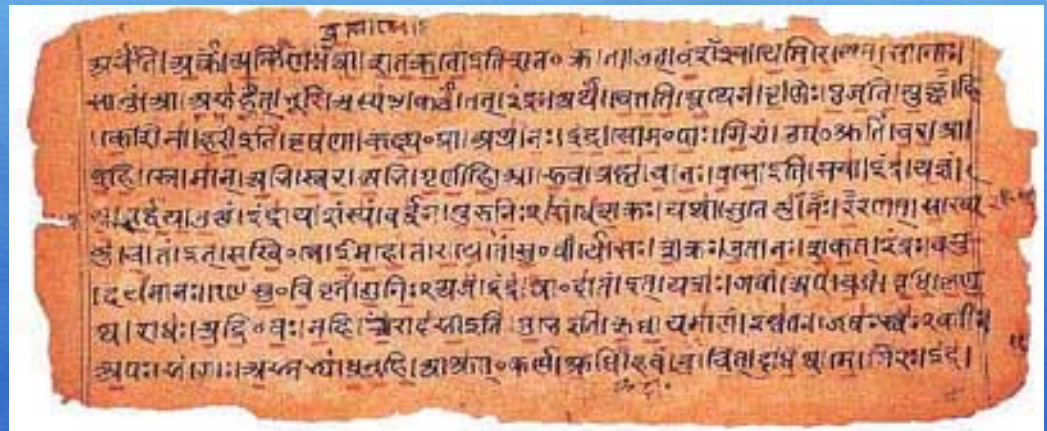 अर्चंति।अर्कं।अर्किणः।ब्रह्माणः।त्वा।शतक्रतो।इति।शत॰क्रतो।उत्।वंशंऽइव।येमिरे।यत्।सानोः।
सानुं।आ।अरुहत्।भूरि।अस्पष्ट।कर्त्वं।तत्।इंद्रः।अर्थं।चेतति।यूथेन।वृष्णिः।एजति।युक्ष्व।हि
केशिना।हरी।इति।वृषणा।कक्ष्य॰प्रा।अथ।नः।इंद्र।सोम॰पाः।गिरां।उप॰श्रुतिं।चर।आ
इहि।स्तोमान्।अभि।स्वर।अभि।गृणीहि।आ।रुव।ब्रह्म।च।नः।वसो।इति।सचा।इंद्र।यज्ञं।च
वर्धय।उक्थं।इंद्राय।शंस्यं।वर्धनं।शक्रः।यथा।सुतेषु।नः।ररणत्।सख्ये
षु।च।तं।इत्।सखि॰त्वे।ईमहे।तं।राये।तं।सु॰वीर्ये।सः।शक्रः।उत।नः।शकत्।इंद्रः।वसु
दयमानः।सु॰विवृतं।इंद्र।त्वा॰दातं।इत्।यशः।गवां।अप।व्रजं।वृधि।कृणु
ष्व।राधः।अद्रि॰वः।नहि।त्वा।रोदसी।इति।उभे।इति।ऋघायमाणं।इन्वतः।जेषः
अपः।सं।गाः।अस्मभ्यं।धूनुहि।आश्रुत्॰कर्ण।श्रुधि।हवं।नु।चित्।दधिष्व।मे।गिरः।इंद्र।